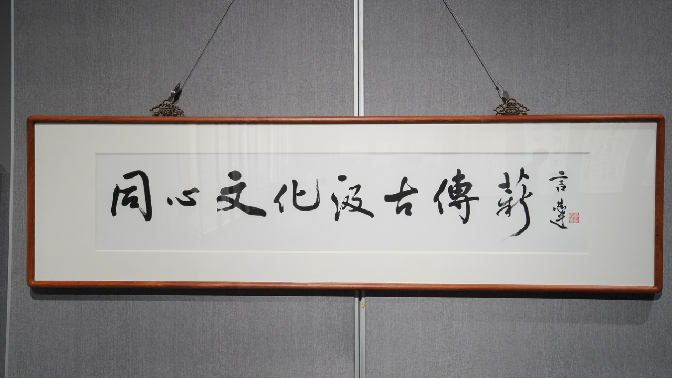 同心文化汲古傳薪
言